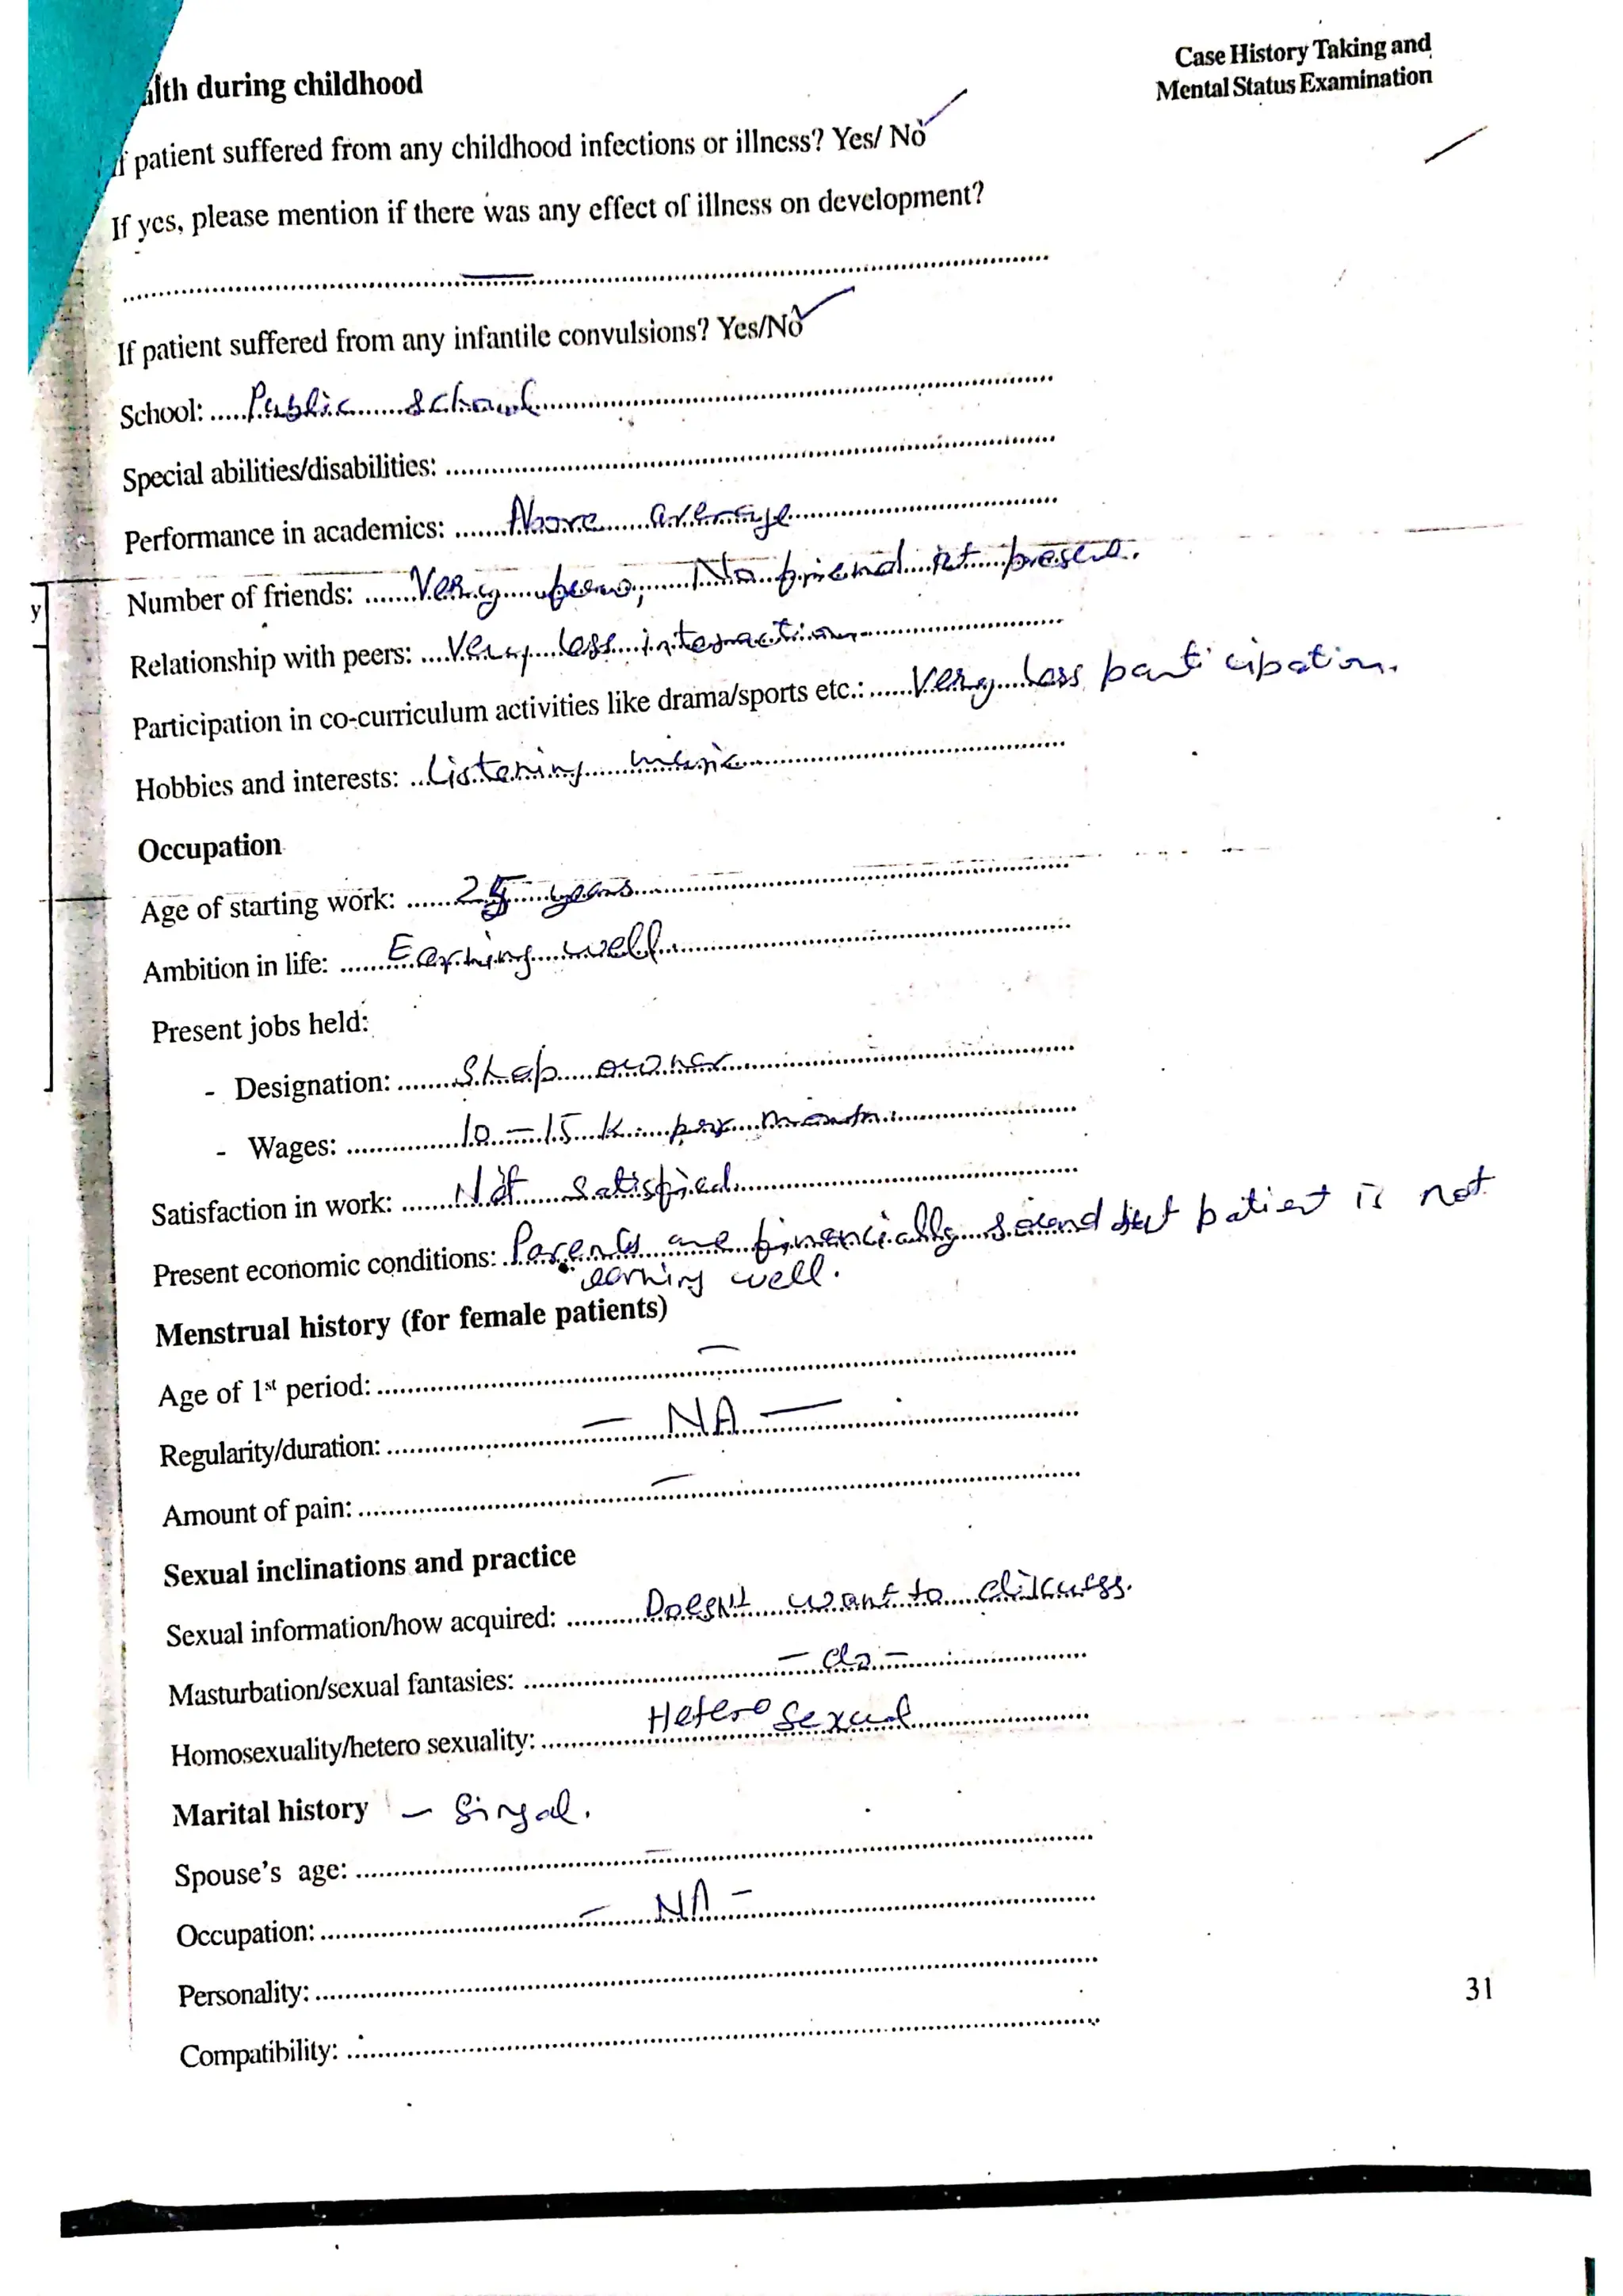 Case History Taking and
Mental Status Examination
alth during childhood
If patient suffered from any childhood infections or illness? Yes/ No ✓
If yes, please mention if there was any effect of illness on development?
If patient suffered from any infantile convulsions? Yes/No ✓
School: Public school
Special abilities/disabilities:
Performance in academics: Above average
Number of friends: Very few, No friend at present.
Relationship with peers: Very less interaction
Participation in co-curriculum activities like drama/sports etc.: Very less participation.
Hobbies and interests: Listening music
Occupation
Age of starting work: 25 years
Ambition in life: Earning well
Present jobs held:
- Designation: Shop owner
- Wages: 10 - 15 K per month
Satisfaction in work: Not satisfied
Present economic conditions: Parents are financially sound but patient is not
earning well.
Menstrual history (for female patients)
Age of 1st period: —
Regularity/duration: — NA —
Amount of pain: —
Sexual inclinations and practice
Sexual information/how acquired: Doesn't want to discuss.
Masturbation/sexual fantasies: - do -
Homosexuality/hetero sexuality: Hetero sexual
Marital history - Singal.
Spouse's age: —
Occupation: - NA -
Personality:
Compatibility:
31
y